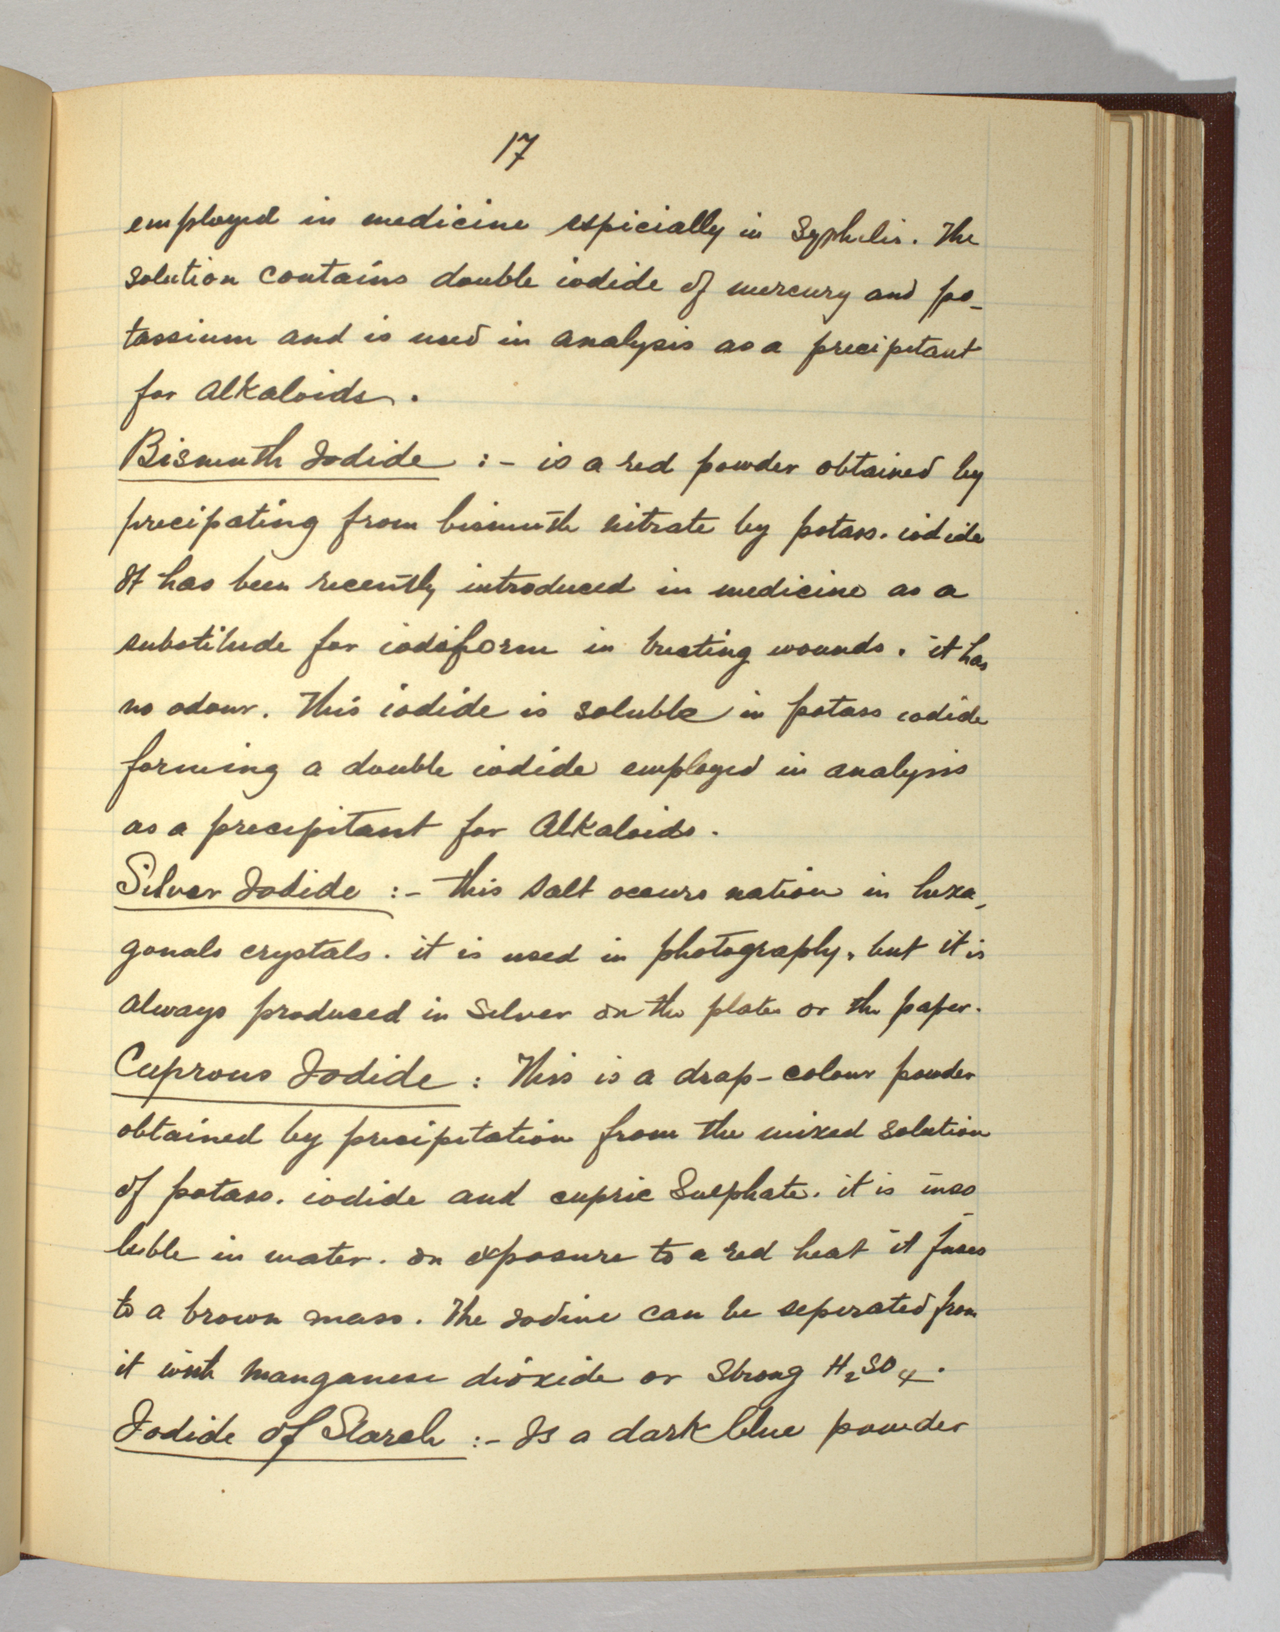 17
employed in medicine espicially in Syphelis. The
solution contains double iodide of mercury and po-
tassium and is used in analysis as a precipitant
for Alkaloids.
Bismuth Iodide :- is a red powder obtained by
precipating from bismuth nitrate by potass. iodide
It has been recently introduced in medicine as a
substitude for iodoform in treating wounds. it has
no odour. This iodide is soluble in potass iodide
forming a double iodide employed in analysis
as a precipitant for Alkaloids.
Silver Iodide :- This salt occurs nation in hexa-
gonals crystals. it is used in photography, but it is
always produced in silver on the plates or the paper.
Cuprous Iodide : This is a drap-colour powder
obtained by precipitation from the mixed solution
of potass. iodide and cupric Sulphate. it is inso-
luble in water. on exposure to a red heat it fuses
to a brown mass. The Iodine can be seperated from
it with manganese dioxide or strong H₂SO₄.
Iodide of Starch :- Is a dark blue powder